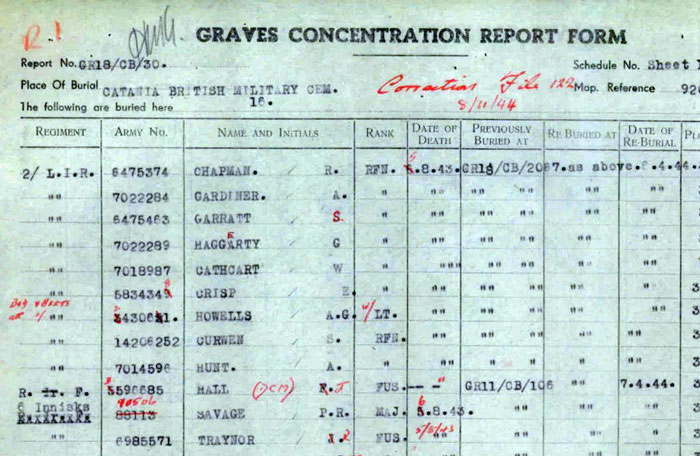 R 1
GRAVES CONCENTRATION REPORT FORM
Report No. GR18/CB/30. Schedule No. Sheet 1
Place Of Burial CATANIA BRITISH MILITARY CEM. Corrections File 122 Map. Reference 926
The following are buried here 16. 8/11/44
REGIMENT ARMY No. NAME AND INITIALS RANK DATE OF DEATH PREVIOUSLY BURIED AT RE BURIED AT DATE OF RE-BURIAL
2/ L.I.R. 6475374 CHAPMAN. R. RFN. 5.8.43. GR18/CB/2067. as above. .4.44.
"" 7022284 GARDINER. A. "" "" "" "" ""
"" 6475463 GARRATT S. "" "" "" "" ""
"" 7022289 HAGGERTY G "" "" "" "" ""
"" 7018987 CATHCART W "" """ "" "" ""
"" 5834349 CRISP E. "" "" "" "" "" 3
"" 430 1. HOWELLS A.G. w/LT. "" "" "" "" 3
"" 14206252 CURWEN S. RFN. "" "" "" "" 3
"" 7014596 HUNT. A. "" "" "" "" "" 3
R. Ir. F. 5598685 HALL (JCM) J FUS. -- " GR11/CB/106 "" 7.4.44. 3
6 Innisks 90506
88113 SAVAGE P.R. MAJ. 6.8.43. "" "" "" 3
"" 6985571 TRAYNOR FUS. 5/8/43 "" "" "" "" 3